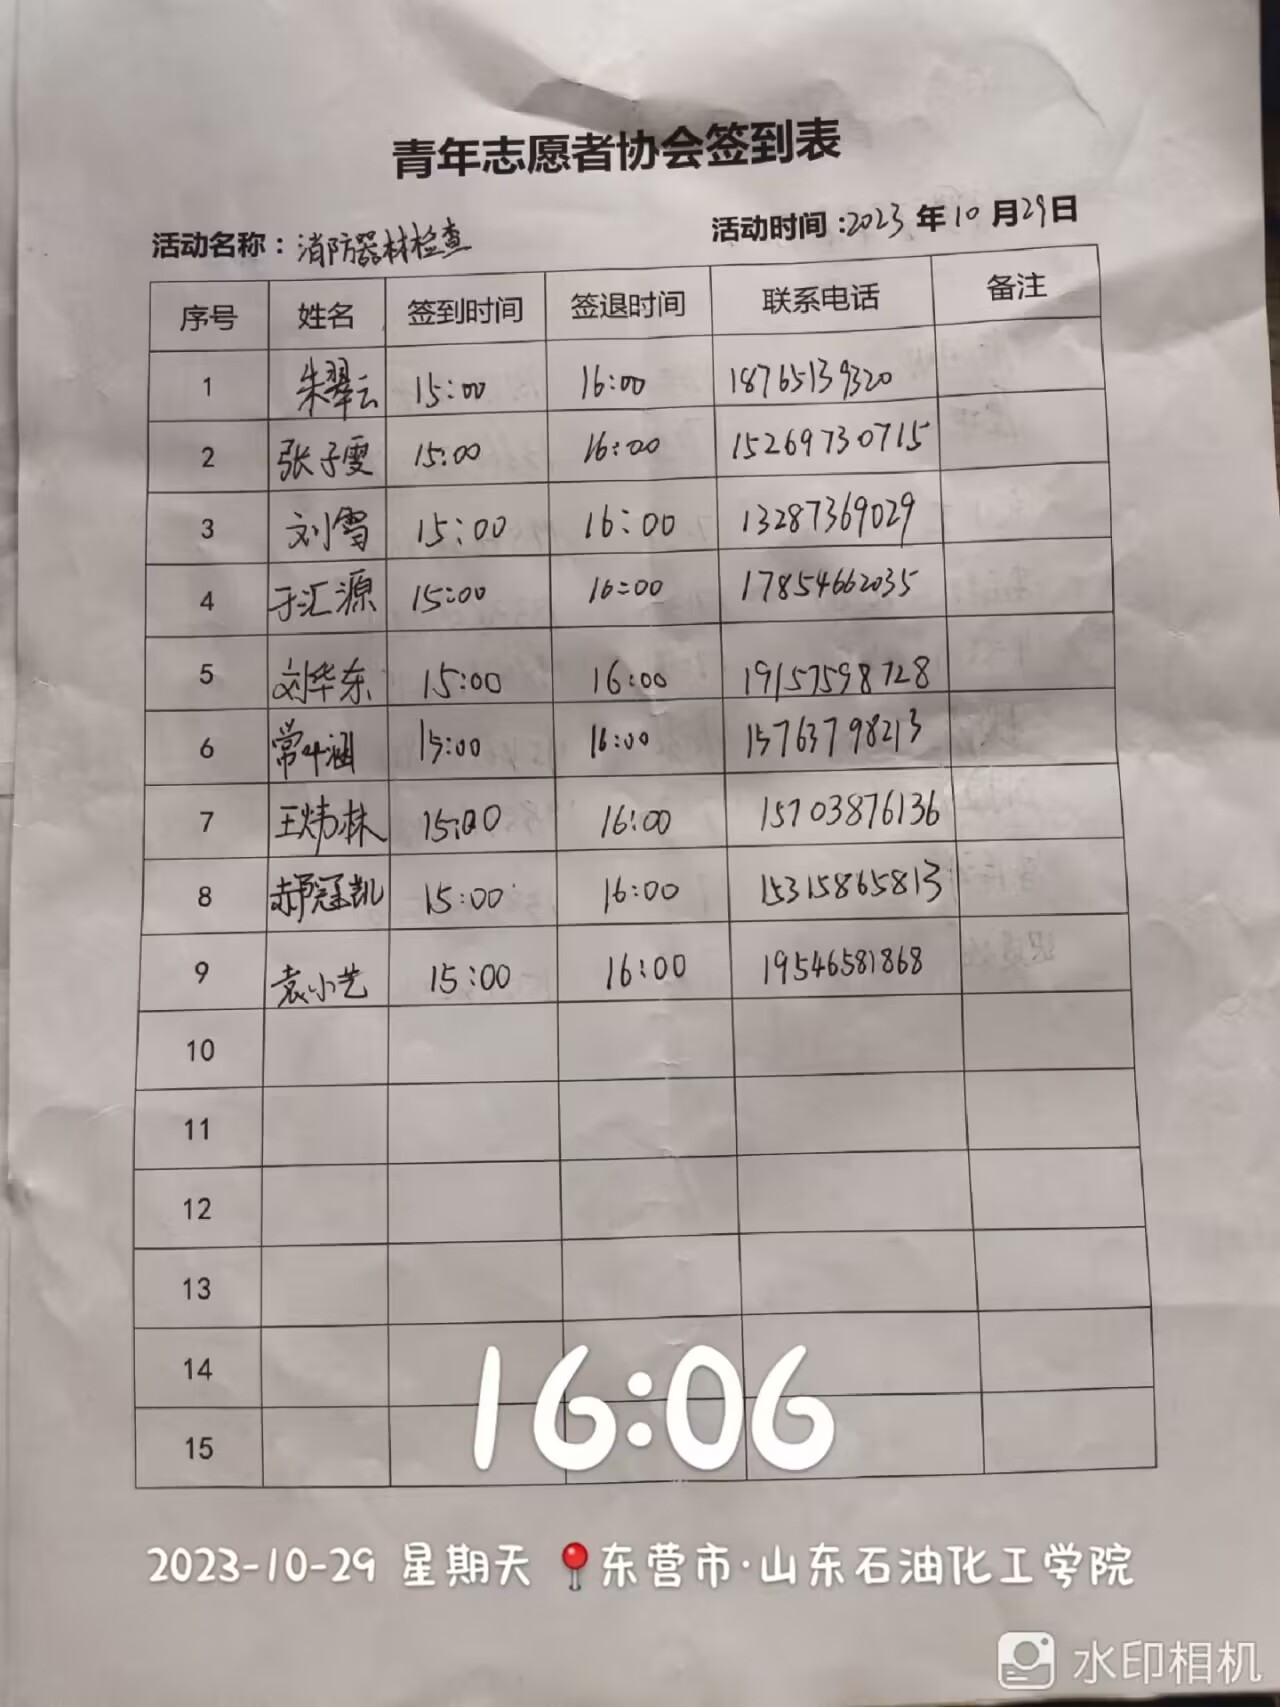 青年志愿者协会签到表
活动名称：消防器材检查 活动时间：2023年10月29日
序号 姓名 签到时间 签退时间 联系电话 备注
1 朱翠云 15:00 16:00 18765139320
2 张子雯 15:00 16:00 15269730715
3 刘雪 15:00 16:00 13287369029
4 于汇源 15:00 16:00 17854662035
5 刘华东 15:00 16:00 19157598728
6 常 涵 15:00 16:00 15763798213
7 王炜林 15:00 16:00 15703876136
8 郝冠凯 15:00 16:00 15315865813
9 袁小艺 15:00 16:00 19546581868
10
11
12
13
14
15
16:06
2023-10-29 星期天 东营市·山东石油化工学院
水印相机